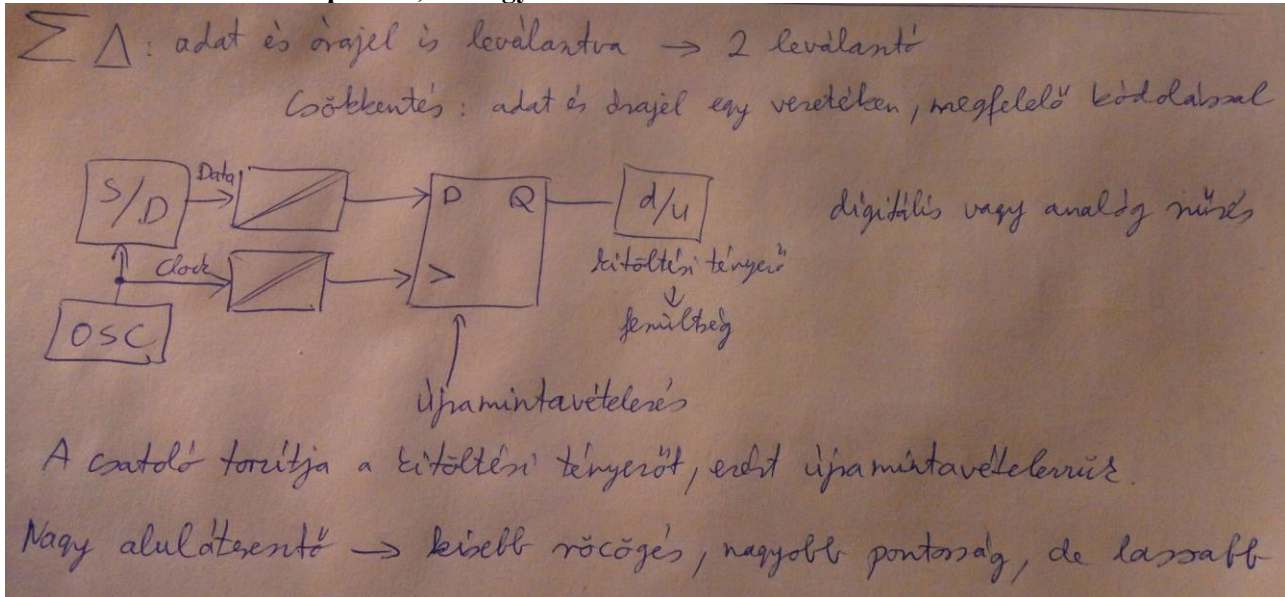 ∑ Δ: adat és órajel is leválasztva → 2 leválasztó
Csökkentés: adat és órajel egy vezetéken, megfelelő kódolással
S/D
Data
D Q
d/u
digitális vagy analóg szűrés
Clock
>
kitöltési tényező
↓
feszültség
OSC
újramintavételezés
A csatoló torzítja a kitöltési tényezőt, ezért újramintavételezzük.
Nagy aluláteresztő → kisebb röcögés, nagyobb pontosság, de lassabb